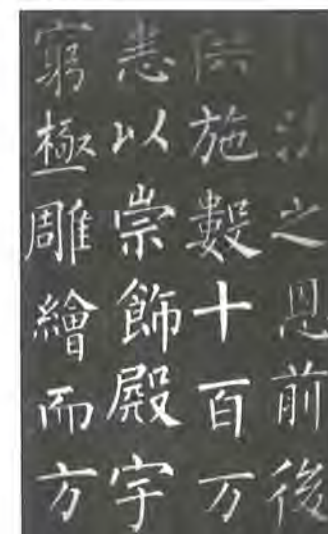 之恩前後
供施數十百万
悉以崇飾殿宇
窮極雕繪而方